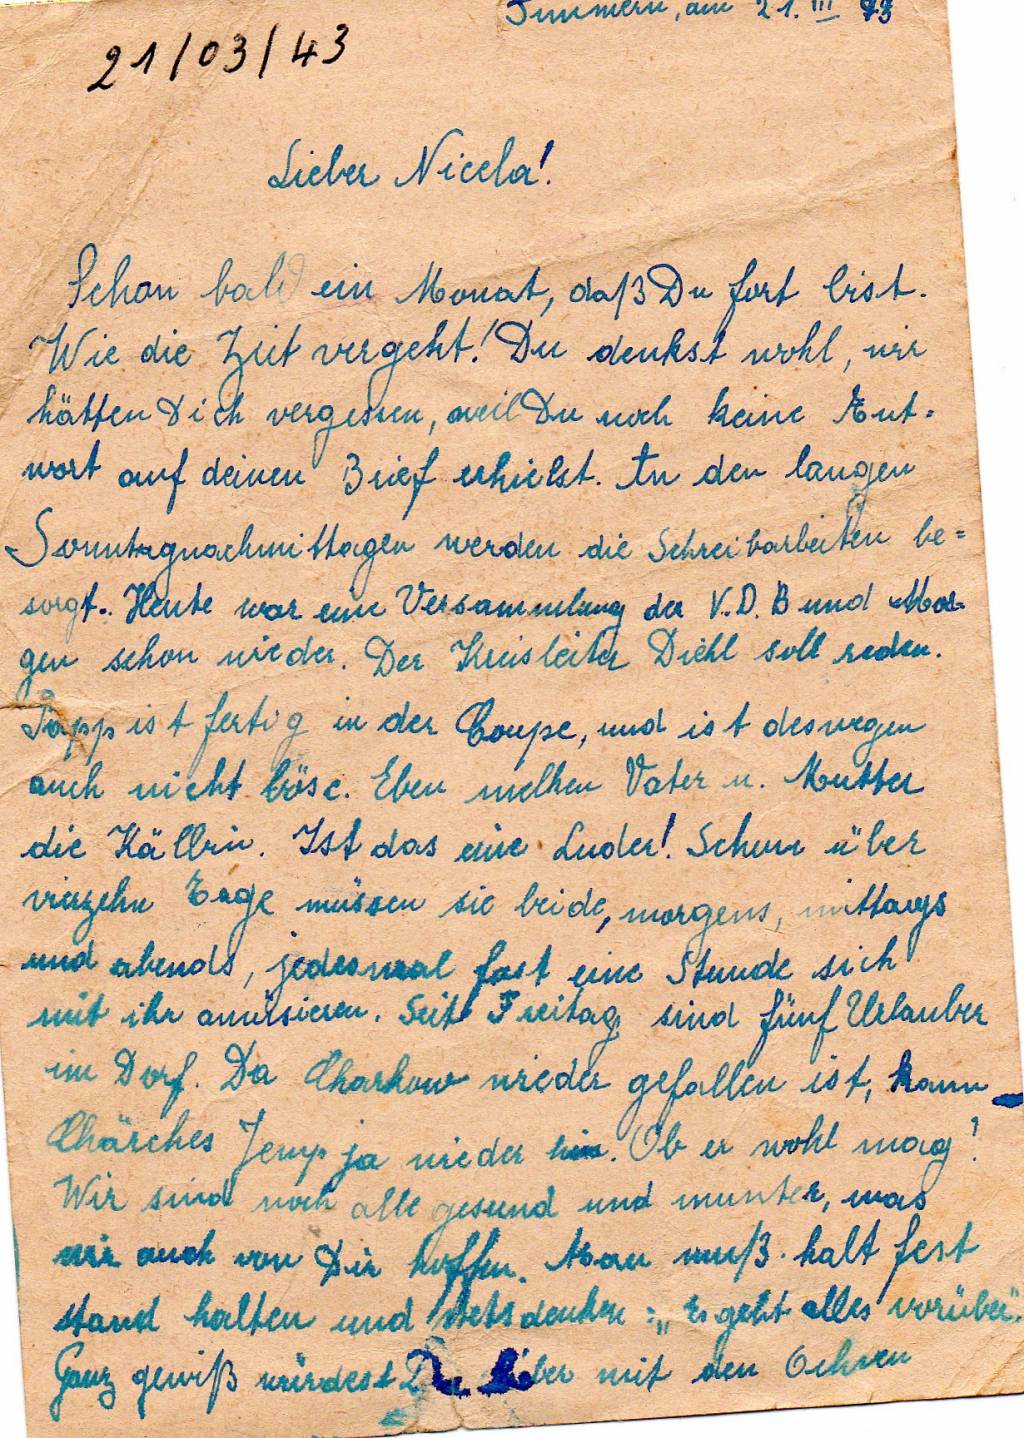 Immern, am 21. III 43
21/03/43
Lieber Nicola!
Schon bald ein Monat, daß Du fort bist.
Wie die Zeit vergeht! Du denkst wohl, wir
hätten Dich vergessen, weil Du noch keine Ant=
wort auf deinen Brief erhielst. An den langen
Sonntagnachmittagen werden die Schreibarbeiten be=
sorgt. Heute war eine Versammlung der V.D.B und Mor=
gen schon wieder. Der Kreisleiter Diehl soll reden.
Papp ist fertig in der Coupe, und ist deswegen
auch nicht böse. Eben melken Vater u. Mutter
die Kälbin. Ist das eine Luder! Schon über
vierzehn Tage müssen sie beide, morgens, mittags
und abends, jedesmal fast eine Stunde sich
mit ihr amüsieren. Seit Freitag sind fünf Urlauber
im Dorf. Da Charkow wieder gefallen ist, kann
Chärches Jemp ja wieder hin. Ob er wohl mag!
Wir sind noch alle gesund und munter, was
wir auch von Dir hoffen. Man muß halt fest
stand halten und stets denken: „Es geht alles vorüber".
Ganz gewiß würdest Du lieber mit den Ochsen